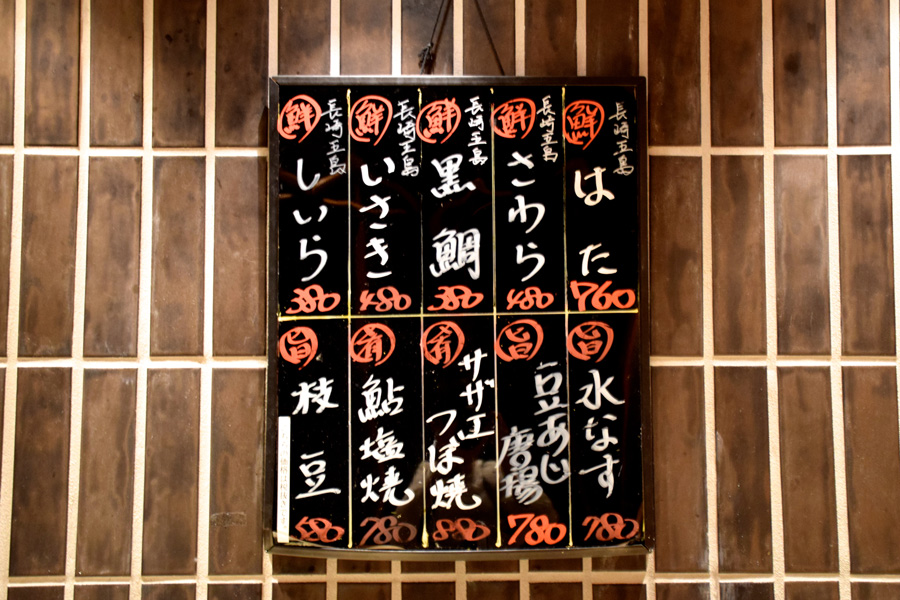 鮮 長崎五島
はた
760
鮮 長崎五島
さわら
480
鮮 長崎五島
黒鯛
380
鮮 長崎五島
いさき
480
鮮 長崎五島
しいら
380
旨
水なす
780
旨
豆あじ
唐揚
780
肴
サザエ
つぼ焼
880
肴
鮎塩焼
780
旨
枝豆